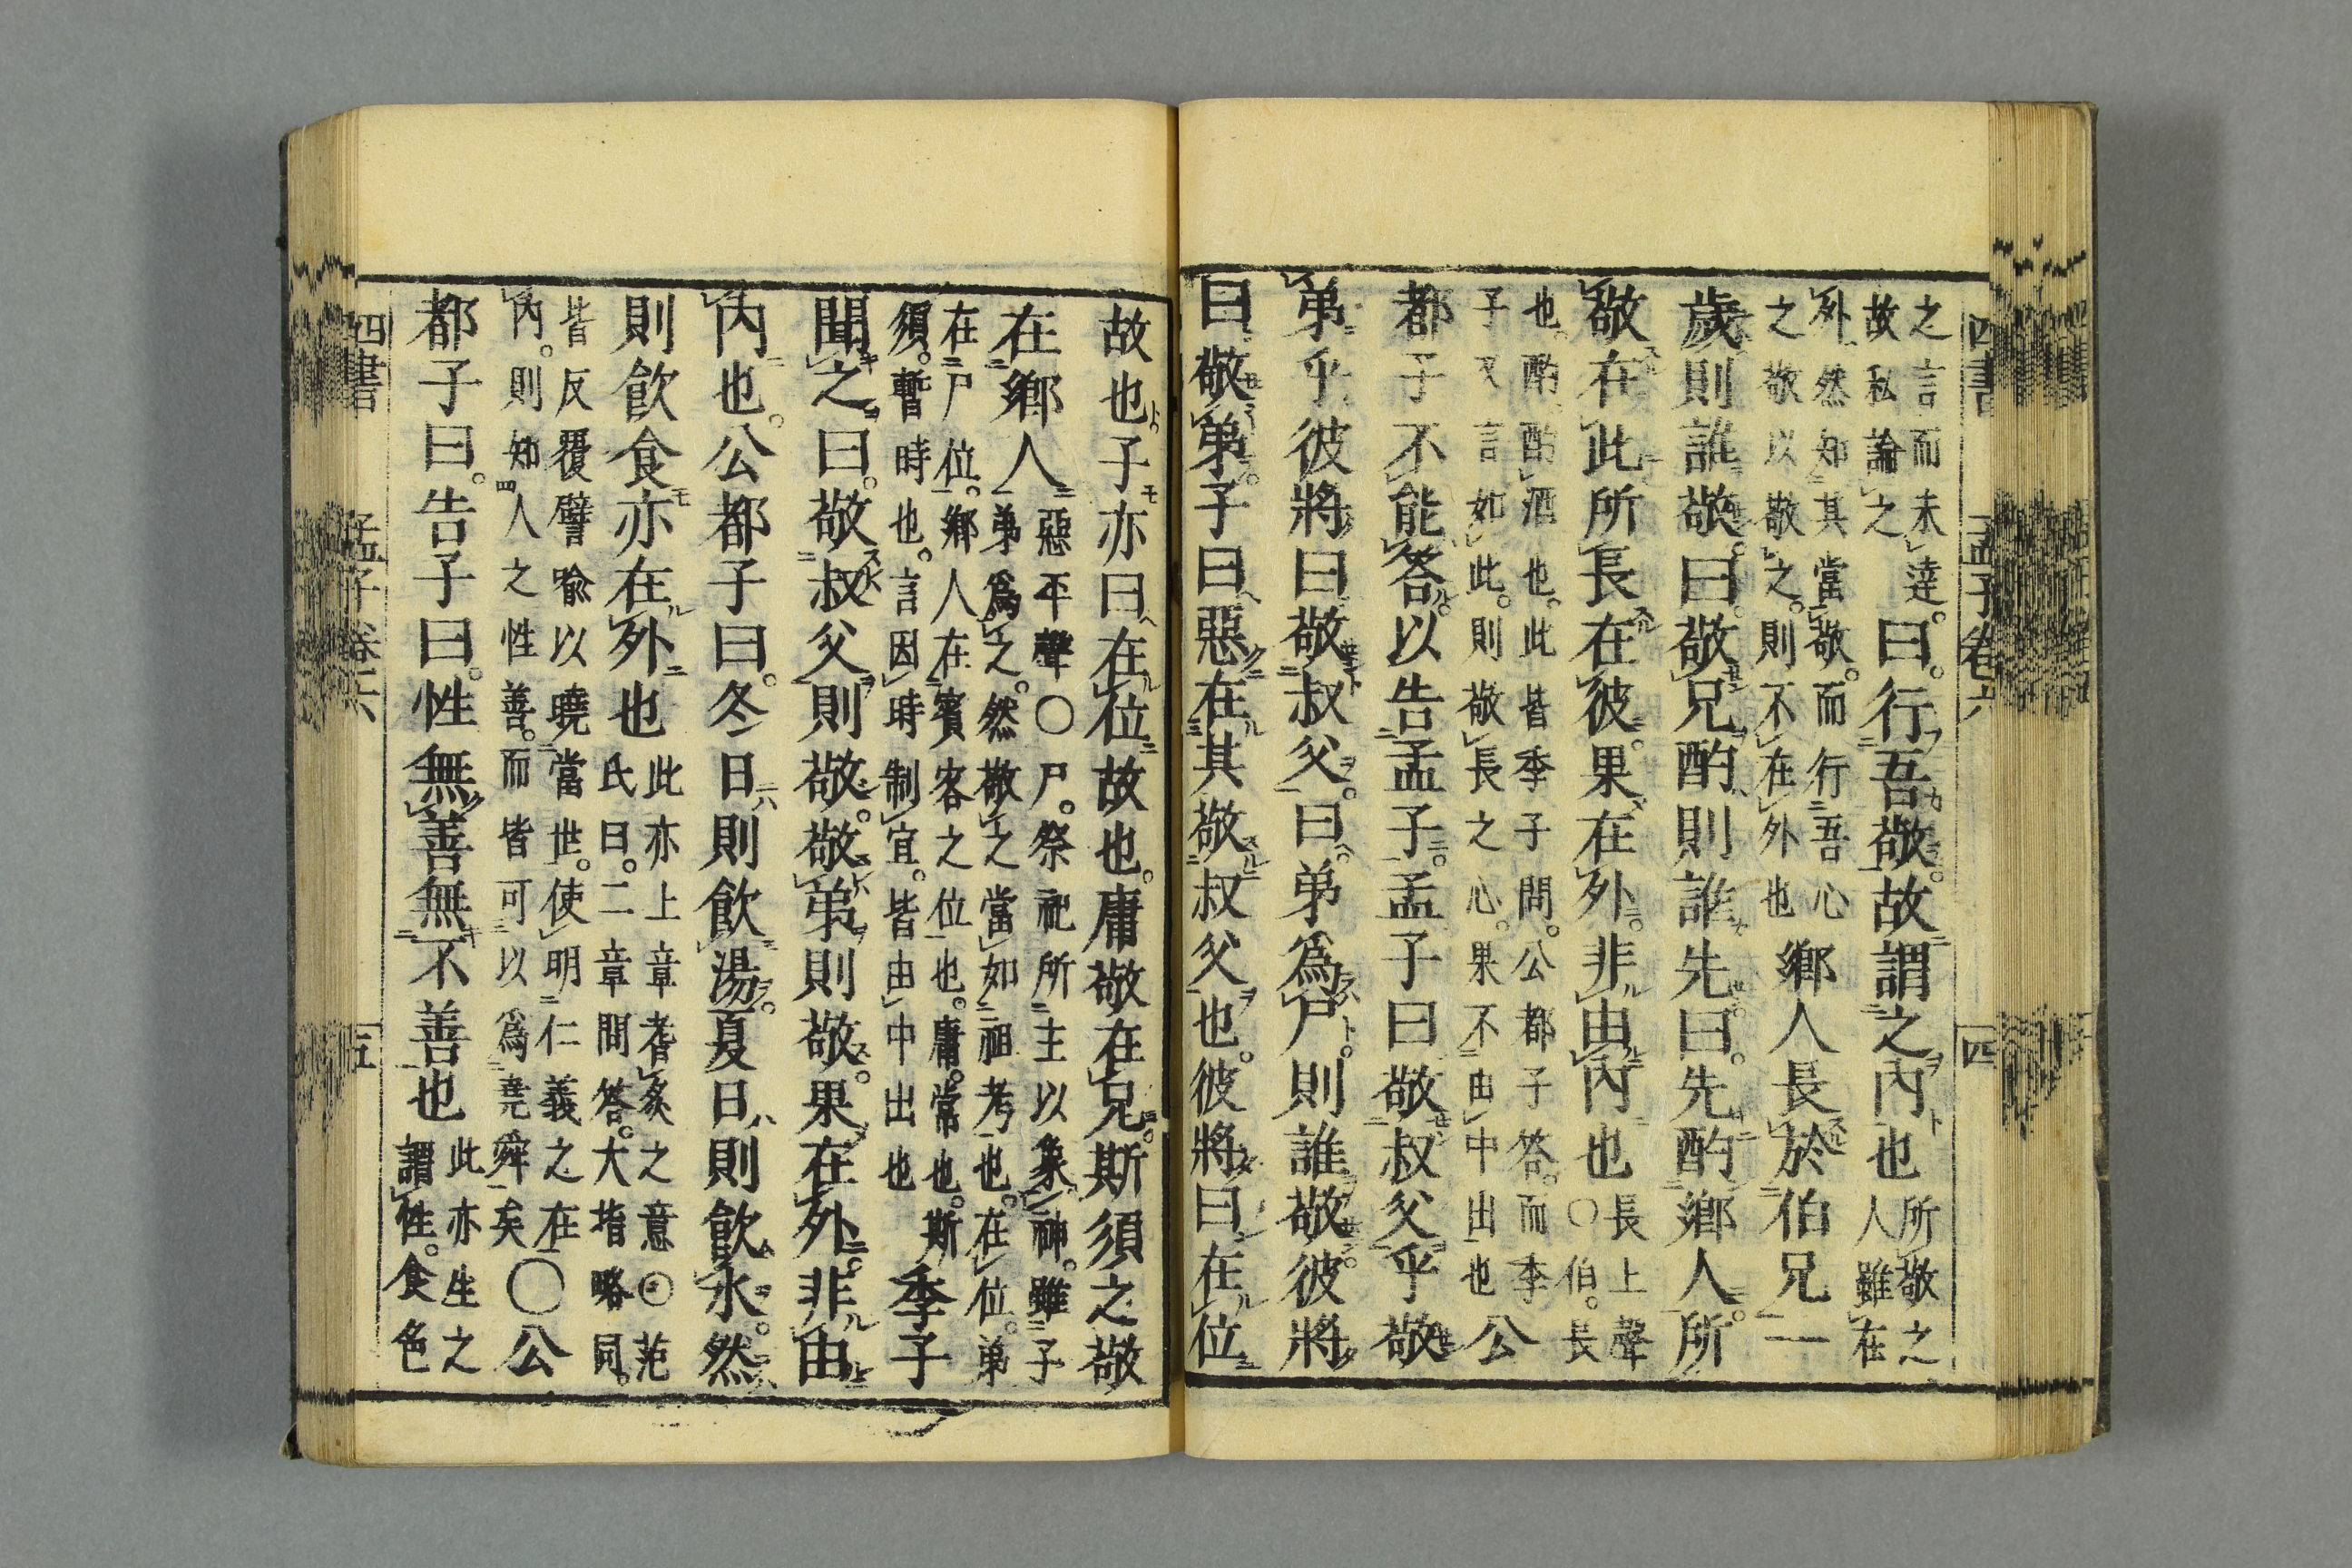 四書 孟子卷六 四
之言而未達。故私論之曰。行吾敬。故謂之內也所敬之人雖在
外然知其當敬。而行吾心之敬以敬之。則不在外也鄉人長於伯兄一
歲則誰敬。曰。敬兄酌則誰先。曰。先酌鄉人。所
敬在此所長在彼。果在外。非由內也長上聲〇伯。長
也。酌。酌酒也。此皆季子問。公都子答。而季子又言如此。則敬長之心。果不由中出也公
都子不能答。以告孟子。孟子曰敬叔父乎敬
弟乎彼將曰敬叔父。曰。弟爲尸。則誰敬。彼將
曰敬弟。子曰惡在其敬叔父也。彼將曰在位
故也子亦曰在位故也。庸敬在兄。斯須之敬
在鄉人惡平聲〇尸。祭祀所主以象神。雖子弟爲之。然敬之當如祖考也。在位。弟
在尸位。鄉人在賓客之位也。庸。常也。斯須。暫時也。言因時制宜。皆由中出也季子
聞之曰。敬叔父則敬。敬弟則敬。果在外。非由
內也。公都子曰。冬日則飲湯。夏日則飲水。然
則飲食亦在外也此亦上章耆炙之意〇范氏曰。二章問答。大指略同。
皆反覆譬喻以曉當世。使明仁義之在內。則知人之性善。而皆可以爲堯舜矣〇公
都子曰。告子曰。性無善無不善也此亦生之謂性。食色
四書 孟子卷六 五